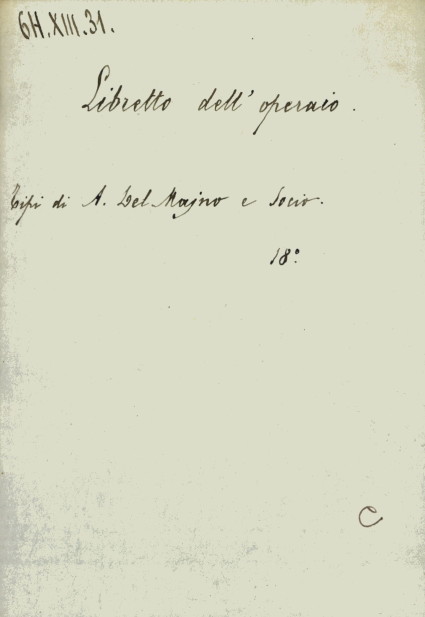 6H.XIII.31.
Libretto dell' operaio.
Tipi di A. Del Majno e Socio.
18°
C